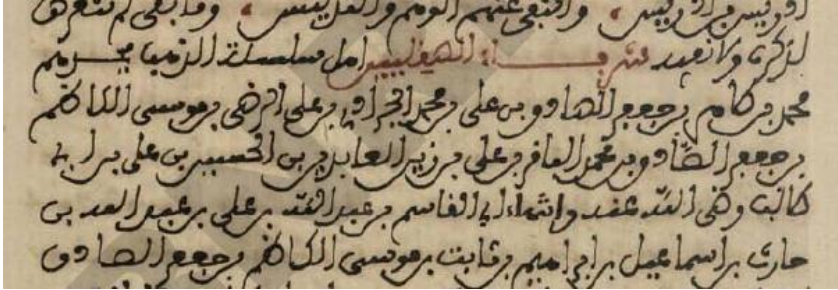 ادريس بن ادريس، وانتفى عنهم الوهم والتلبيس، وما بقى لم نتعرض
لذكره ولا نعيده شرفاء الصقليين اهل سلسلة الذهب جدهم
محمد بن طاهر بن جعفر الصادق بن على بن محمد الجواد بن على الرضى بن موسى الكاظم
بن جعفر الصادق بن محمد الباقر بن على بن زين العابدين بن الحسين بن على بن ابى
طالب رضى الله عنه وابناء ابى القاسم بن عبد الله بن على بن عبد الله بن
حارث بن اسماعيل بن ابراهيم بن ثابت بن موسى الكاظم بن جعفر الصادق